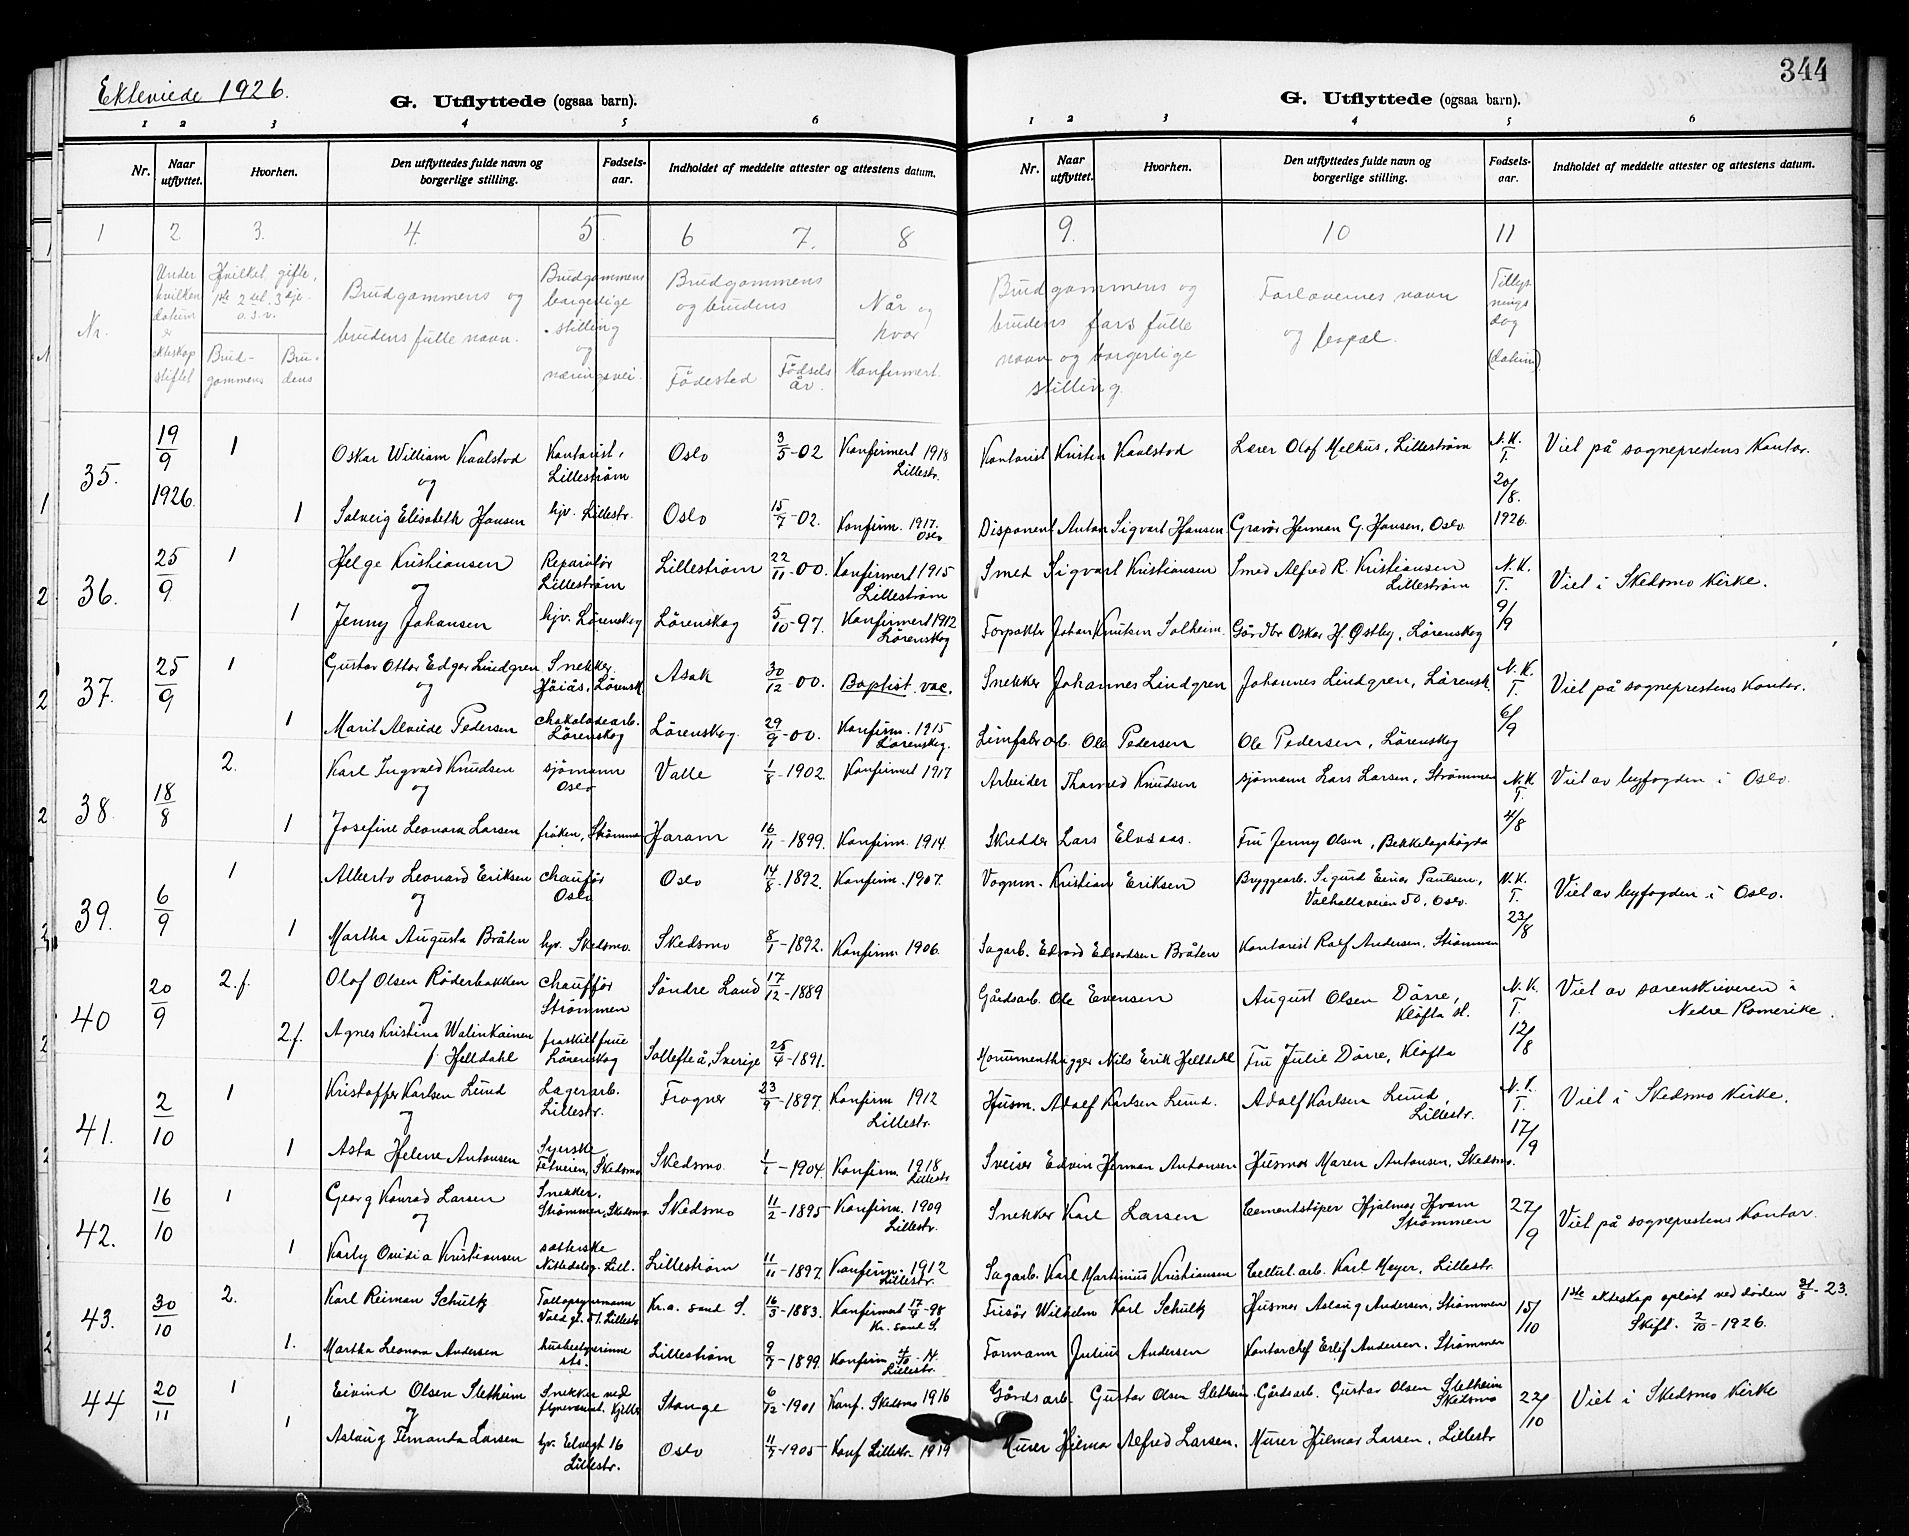 Ekteviede 1926.
G. Utflyttede (ogsaa barn).
1 2 3 4 5 6
Nr. Naar utflyttet. Hvorhen. Den utflyttedes fulde navn og borgerlige stilling. Fødselsaar. Indholdet af meddelte attester og attestens datum.
1 2 3. 4. 5. 6 7. 8
Nr. Under hvilken datum er ekteskap stiftet
Hvilket gifte, 1ste 2det 3dje o.s.v.
Brudgommens Brudens
Brudgommens og brudens fulle navn.
Brudgommens borgerlige stilling og næringsvei.
Brudgommens og brudens
Fødested Fødselsår.
Når og hvor Konfirmert.
35. 19/9 1926. 1 Oskar William Kaalstad Kontorist, Lillestrøm Oslo 3/5-02 Konfirmert 1918 Lillestr.
og
1 Solveig Elisabeth Hansen hjv. Lillestr. Oslo 15/7-02. Konfirm. 1917. Oslo
36. 25/9 1 Helge Kristiansen Reparatør Lillestrøm Lillestrøm 22/11-00. Konfirmert 1915 Lillestrøm
og
1 Jenny Johansen hjv. Lørenskog Lørenskog 5/10-97. Konfirmert 1912 Lørenskog
37. 25/9 1 Gustav Ottar Edgar Lindgren Snekker Høiås, Lørensk. Asak 30/12-00. Baptist vac.
og
1 Marit Alvilde Pedersen chokoladearb. Lørenskog Lørenskog. 29/9-00. Konfirm. 1915 Lørenskog.
38. 18/8 2. Karl Ingvald Knudsen sjømann Oslo Valle 1/8-1902. Konfirmert 1917
og
1 Josefine Leonora Larsen frøken, Strømmen Haram 16/11-1899. Konfirm. 1914.
39. 6/9 1 Alberto Leonard Eriksen chaufør Oslo Oslo 14/8-1892. Konfirm. 1907.
og
1 Martha Augusta Bråten hjv. Skedsmo. Skedsmo 8/1-1892. Konfirm. 1906.
40 20/9 2.f. Olaf Olsen Røderbakken Chauffør Strømmen Søndre Land 17/12-1889
og
2f. Agnes Kristina Walinkainen f. Helldahl fraskilt frue Lørenskog Sollefteå, Sverige 25/4-1891.
41. 2/10 1 Kristoffer Karlsen Lund Lagerarb. Lillestr. Frogner 23/9-1897. Konfirm 1912 Lillestr.
og
1 Asta Helene Antonsen Syerske, Tetveien, Skedsmo Skedsmo. 1/1-1904. Konfirm. 1918 Lillestr.
42. 16/10 1 Georg Konrad Larsen Snekker, Strømmen, Skedsmo Skedsmo 11/2-1895 Konfirm. 1909 Lillestr.
og
1 Karly Ovidia Kristiansen Nittedalsg. Lill. Lillestrøm 11/11-1897. Konfirm. 1912 Lillestr.
43. 30/10 2. Karl Reiman Schultz Lillestr. Kr.a. sand S. 16/3-1883. Konfirmert 17/4-98 Kr. sand S.
1. Martha Leonora Andersen husbestyrerinne sts. Lillestrøm 9/7-1899. Konfirm. 4/10-14. Lillestr.
44 20/11 1 Eivind Olsen Sletheim Snekker ved Kjeller Stange 6/12-1901 Konf. Skedsmo 1916
og
1 Aslaug Fernanda Larsen hjv. Elvegt 16 Lillestr. Oslo 11/5-1905 Konf Lillestr. 1919
344
G. Utflyttede (ogsaa barn).
1 2 3 4 5 6
Nr. Naar utflyttet. Hvorhen. Den utflyttedes fulde navn og borgerlige stilling. Fødselsaar. Indholdet af meddelte attester og attestens datum.
9. 10 11
Brudgommens og brudens fars fulle navn og borgerlige stilling.
Forlovernes navn og bopæl.
Tillysnings dag (datum)
Kontorist Kristen Kaalstad Lærer Olof Melhus, Lillestrøm N.K.T. 20/8. 1926. Viet på sogneprestens Kontor.
Disponent Anton Sigvart Hansen Gravør Herman G. Hansen, Oslo.
Smed Sigvart Kristiansen Smed Alfred R. Kristiansen Lillestrøm N.K.T. 9/9 Viet i Skedsmo Kirke.
Forpakter Johan Knutsen Solheim. Gårdbr Oskar H. Østby, Lørenskog
Snekker Johannes Lindgren Johannes Lindgren, Lørensk. N.K.T. 6/9 Viet på sogneprestens Kontor.
Limfabr.arb. Ole Pedersen Ole Pedersen, Lørenskog
Arbeider Thorvald Knudsen sjømann Lars Larsen, Strømmen N.K.T. 4/8 Viet av byfogden i Oslo.
Skredder Lars Elvsaas. Fru Jenny Olsen, Bekkelagshøgda
Vognm. Kristian Eriksen Bryggearb. Sigurd Einar Paulsen, Valhallaveien 50, Oslo. N.K.T. 23/8 Viet av byfogden i Oslo.
Sagarb. Edvard Edvardsen Bråten Kontorist Ralf Andersen, Strømmen
Gårdsarb. Ole Evensen August Olsen Dørre, Kløfta st. N.K.T. 12/8 Viet av sorenskriveren i Nedre Romerike.
Monumenthugger Nils Erik Helldahl Fru Julie Dørre, Kløfta
Husm. Adolf Karlsen Lund. Adolf Karlsen Lund, Lillestr. N.K.T. 17/9 Viet i Skedsmo Kirke.
Sveiser Edvin Herman Antonsen Husmor Maren Antonsen, Skedsmo.
Snekker Karl Larsen Cementstøper Hjalmar Hvam Strømmen 27/9 Viet på sogneprestens Kontor.
Sagarb. Karl Martinius Kristiansen Cellul.arb. Karl Meyer, Lillestr.
Frisør Wilhelm Karl Schultz Husmor Aslaug Andersen, Strømmen 15/10 1ste ekteskap opløst ved døden 31/5-23. Skift. 2/10-1926.
Formann Julius Andersen Kontorchef Erlif Andersen, Strømmen
Gårdsarb. Gustav Olsen Sletheim Gårdsarb. Gustav Olsen Sletheim Skedsmo 22/10 Viet i Skedsmo Kirke
Murer Hilmar Alfred Larsen. Murer Hilmar Larsen, Lillestr